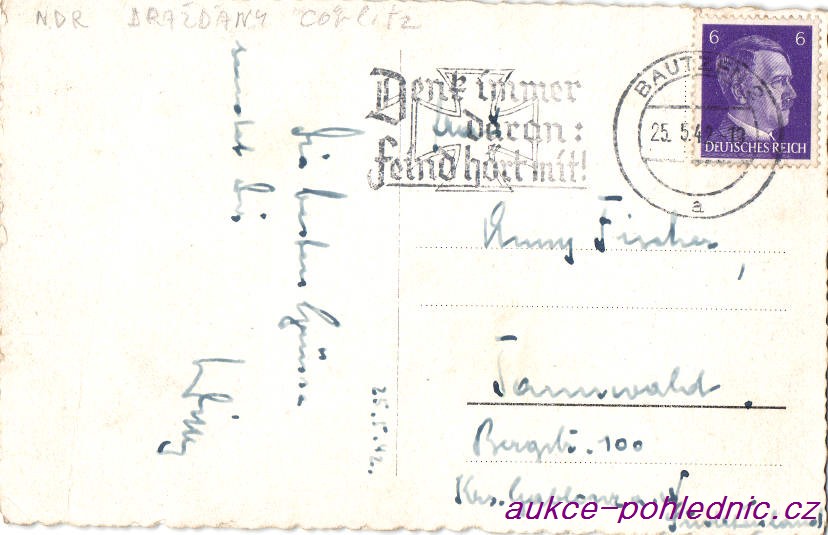 NDR DRAŽĎANY GÖRLITZ
Denk immer
daran:
Feind hört mit!
BAUTZEN
25.5.42
a
6 6
DEUTSCHES REICH
Die besten Grüsse
sendet Dir
25.5.42.
Anny Fischer,
Tannwald.
Bergstr. 100
Krs. Gablonz a. N.
Sudetenland
aukce-pohlednic.cz